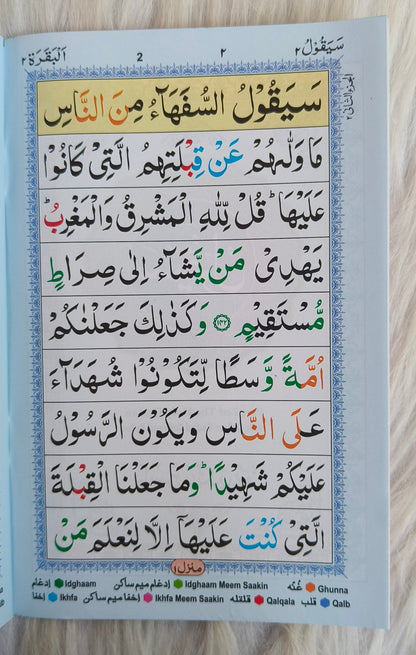 سَيَقُوْلُ ٢ ٢ 2 اَلْبَقَرَة ٢
الجزء الثانی ٢
سَيَقُوْلُ السُّفَهَآءُ مِنَ النَّاسِ
مَا وَلّٰىهُمْ عَنْ قِبْلَتِهِمُ الَّتِيْ كَانُوْا
عَلَيْهَا ؕ قُلْ لِّلّٰهِ الْمَشْرِقُ وَالْمَغْرِبُ ؕ
يَهْدِيْ مَنْ يَّشَآءُ اِلٰى صِرَاطٍ
مُّسْتَقِيْمٍ ﴿١٤٢﴾ وَكَذٰلِكَ جَعَلْنٰكُمْ
اُمَّةً وَّسَطًا لِّتَكُوْنُوْا شُهَدَآءَ
عَلَى النَّاسِ وَيَكُوْنَ الرَّسُوْلُ
عَلَيْكُمْ شَهِيْدًا ؕ وَمَا جَعَلْنَا الْقِبْلَةَ
الَّتِيْ كُنْتَ عَلَيْهَاۤ اِلَّا لِنَعْلَمَ مَنْ
منزل ١
إدغام Idghaam إدغام ميم ساكن Idghaam Meem Saakin غُنّه Ghunna
إخفا Ikhfa إخفا ميم ساكن Ikhfa Meem Saakin قلقله Qalqala قلب Qalb